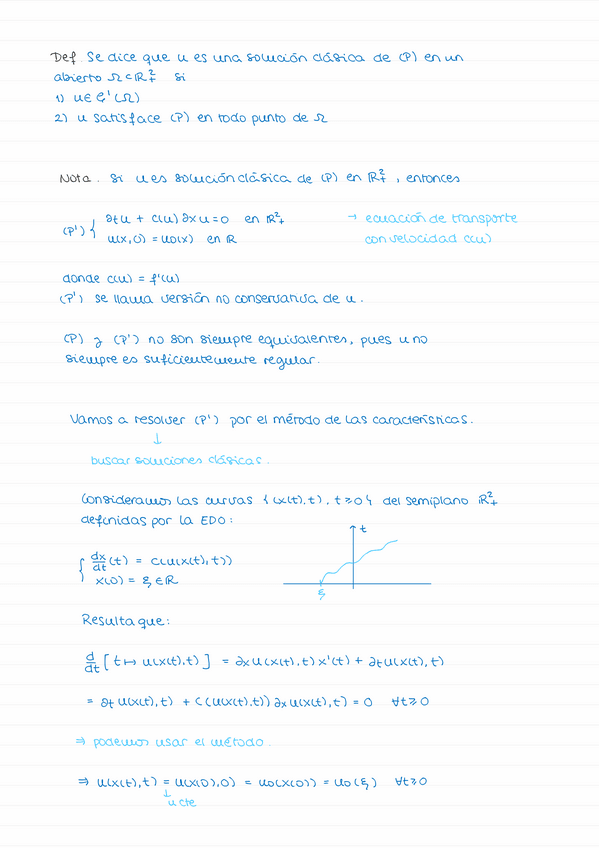 Def Se dice que u es una solución clásica de (P) en un
abierto Ω⊂ℝ²₊ si
1) u∈ 𝒞¹(Ω)
2) u satisface (P) en todo punto de Ω
Nota. Si u es solución clásica de (P) en ℝ²₊, entonces
(P') { ∂tu + c(u) ∂xu = 0 en ℝ²₊ → ecuación de transporte
u(x,0) = u0(x) en ℝ con velocidad c(u)
donde c(u) = f'(u)
(P') se llama versión no conservativa de u.
(P) y (P') no son siempre equivalentes, pues u no
siempre es suficientemente regular.
Vamos a resolver (P') por el método de las características.
↓
buscar soluciones clásicas.
Consideramos las curvas {(x(t),t), t≥0} del semiplano ℝ²₊
definidas por la EDO:
t
{ dx/dt (t) = c(u(x(t),t))
x(0) = ξ ∈ℝ
ξ
Resulta que:
d/dt [t↦ u(x(t),t)] = ∂xu(x(t),t) x'(t) + ∂tu(x(t),t)
= ∂tu(x(t),t) + c(u(x(t),t)) ∂xu(x(t),t) = 0 ∀t≥0
⇒ podemos usar el método.
⇒ u(x(t),t) = u(x(0),0) = u0(x(0)) = u0(ξ) ∀t≥0
↓
u cte